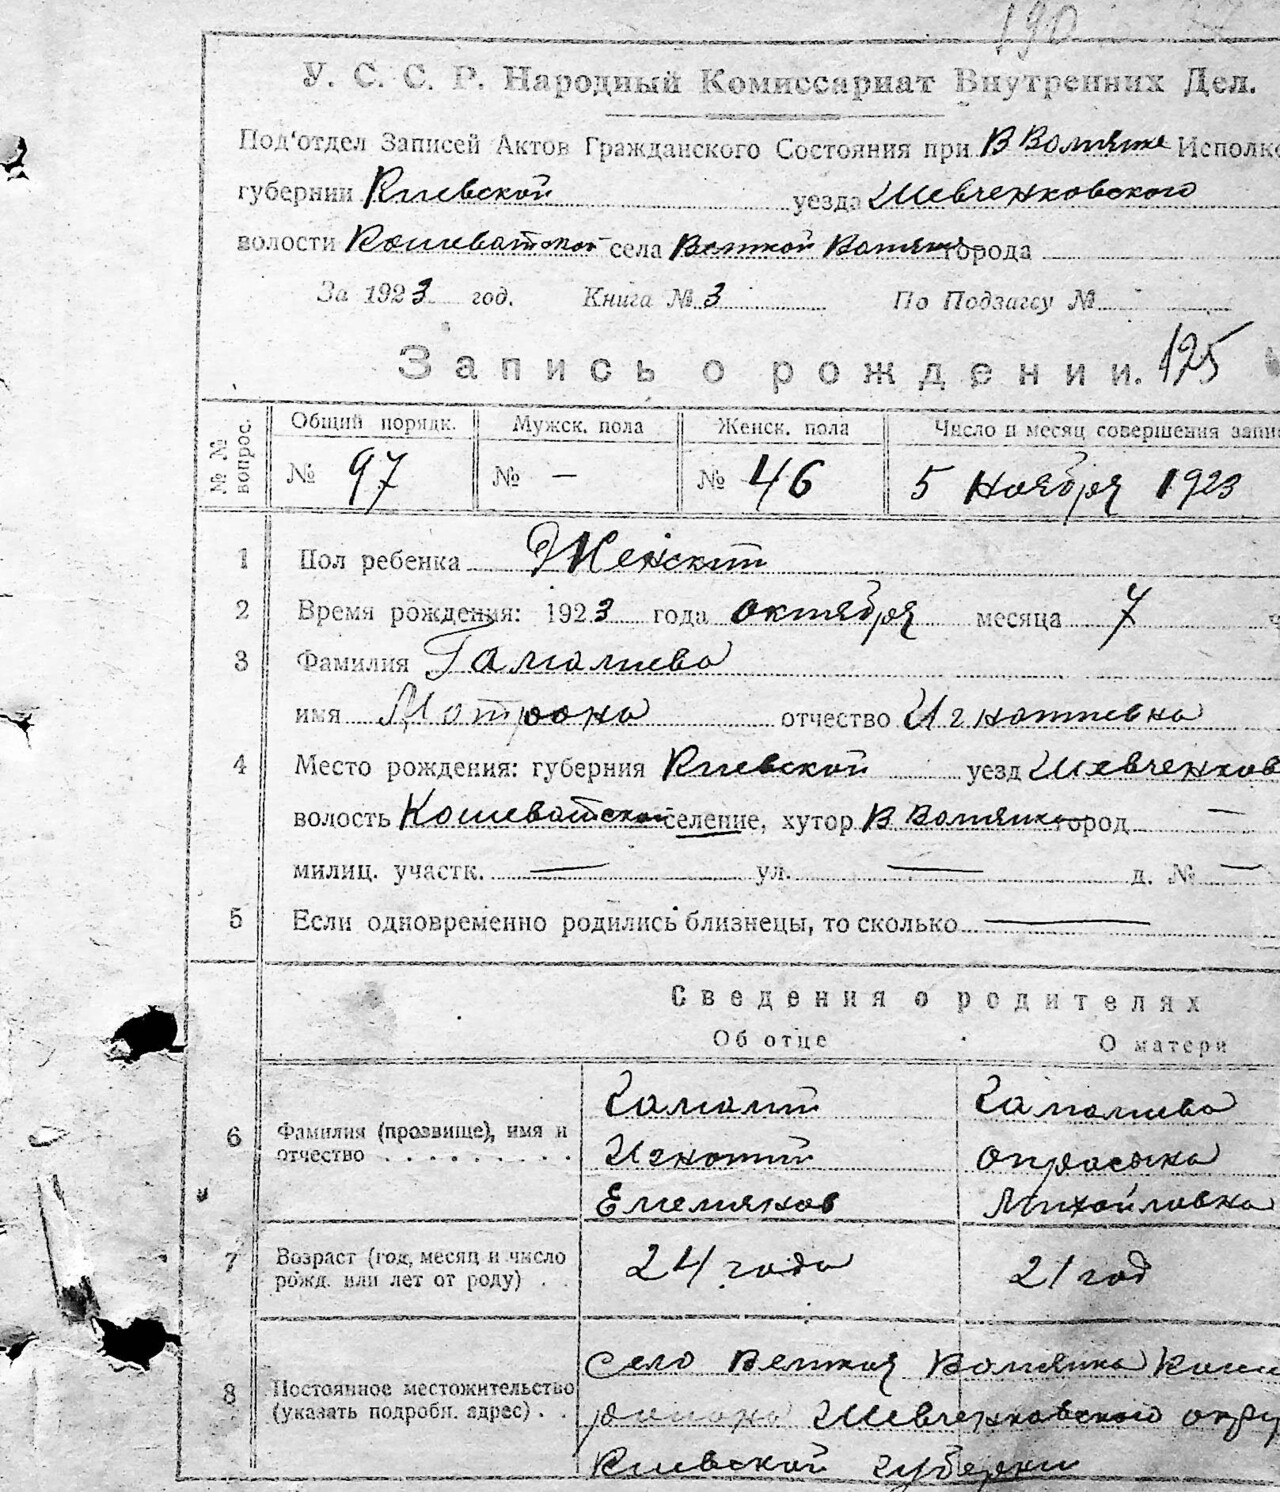 190
У. С. С. Р. Народный Комиссариат Внутренних Дел.
Под'отдел Записей Актов Гражданского Состояния при В Вовнянке Исполк
губернии Киевской уезда Шевченковского
волости Кошеватской села Великой Вовнянки города
За 1923 год. Книга № 3 По Подзагсу №
Запись о рождении. 125
№ № вопрос. Общий порядк. Мужск. пола Женск. пола Число и месяц совершения запи
№ 97 № — № 46 5 Ноября 1923
1 Пол ребенка Женский
2 Время рождения: 1923 года октября месяца 7 ч
3 Фамилия Гамалиева
имя Мотрона отчество Игнатиевна
4 Место рождения: губерния Киевской уезд Шевченков
волость Кошеватской селение, хутор В Вовнянка город —
милиц. участк. — ул. — д. № —
5 Если одновременно родились близнецы, то сколько —
Сведения о родителях
Об отце О матери
6 Фамилия (прозвище), имя и отчество . . . . . . . . .
Гамалий Гамалиева
Игнатий Опраська
Емемянов Михайловна
7 Возраст (год, месяц и число рожд. или лет от роду) . .
24 года 21 год
8 Постоянное местожительство (указать подробн. адрес) . .
Село Великая Вовнянка Коше
района Шевченковского окру
Киевской губернии